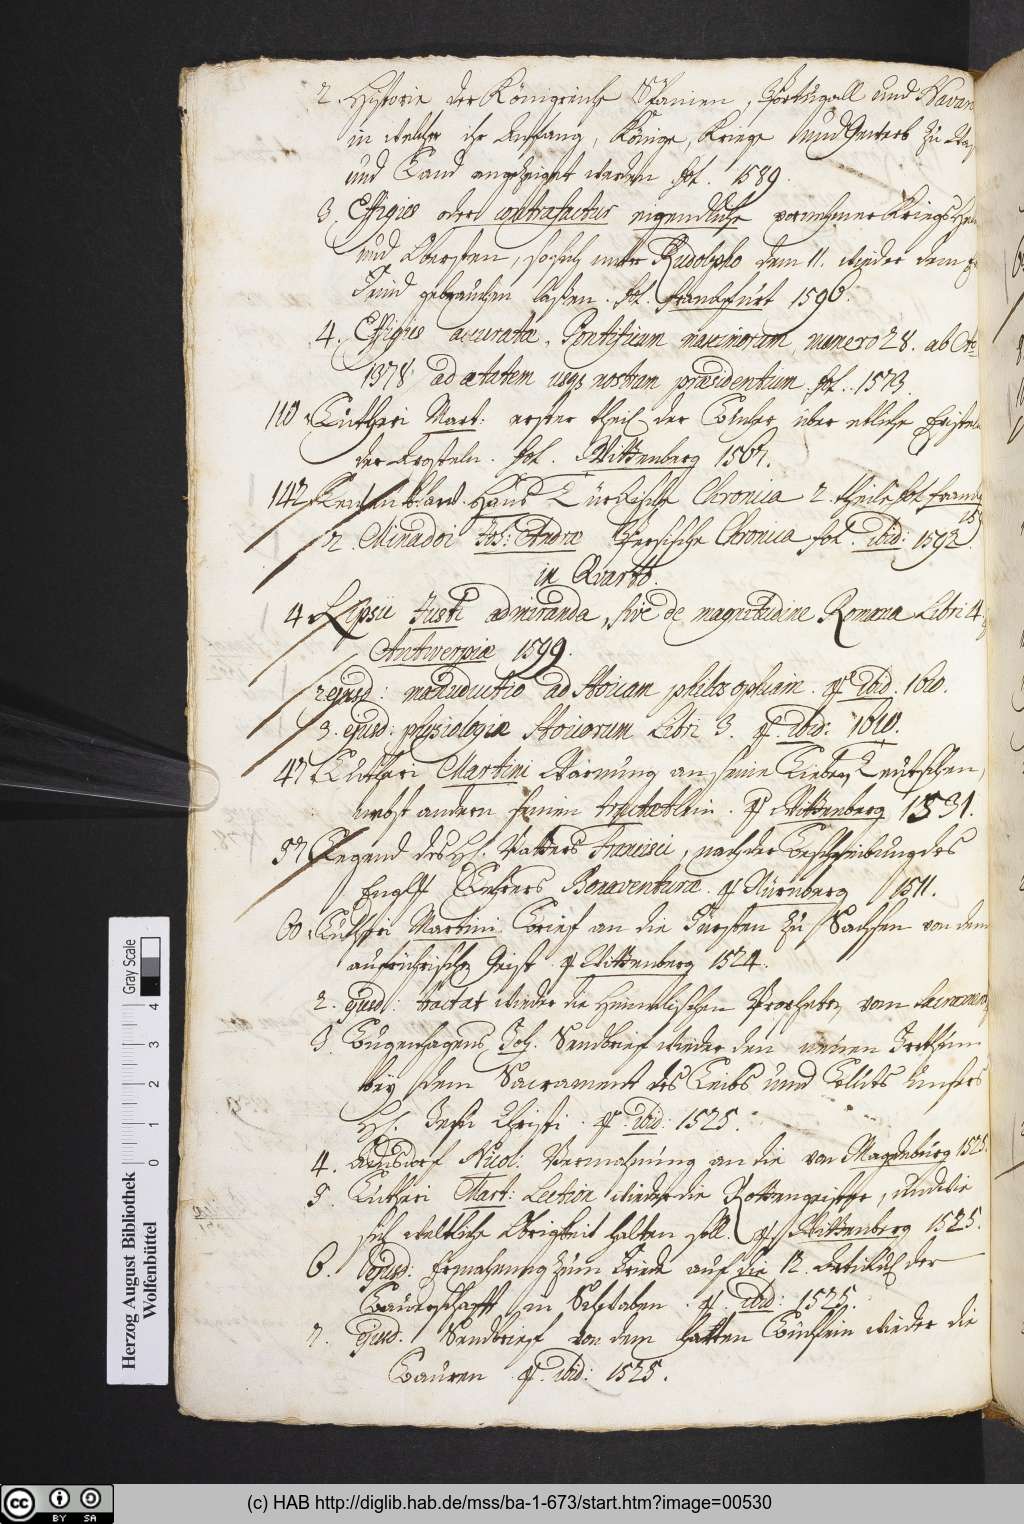 2. Historie der Königreiche Spanien, Portugall und Navar
in welcher ihr Anfang, Könige, Kriege und zu
und Land angezeiget werden fol. 1589.
3. Effigies oder contrafactur eigendliche vornehmer Kriegs
und Obersten, so sich unter Rudolpho dem II. wieder dem
Feind gebrauchen laßen. fol. Franckfurt 1590.
4. Effigies accuratæ Pontificum numero 28. ab
1378 ad ætatem usq; nostram præsidentium fol. 1573.
110 Lutheri Mart: erster theil der Bücher über etliche Epistel
der Aposteln. fol. Wittenberg
142 Hans Türckische Chronica 2. theile fol. Franckf
2. Minadoi Joh: Andr Persische Chronica fol. ibid: 1592
in Quarto.
4 Lipsii Justi admiranda, sive de magnitudine Romana Libri 4
Antwerpiæ 1599.
2 ejusd: manuductio ad Stoicam philosophiam. 4° ibid. 1610.
3. ejusd: physiologiæ Stoicorum Libri 3. 4° ibid: 1610.
47 Lutheri Martini Warnung an seine Lieben Teutschen,
nebst andern seinen tractætlein. 4° Wittenberg 1531.
57 Legend des H. Vatters Francisci, nach der Beschreibung des
Engl Lehrers Bonaventura. 4° Nürnberg 1511.
60 Lutheri Martini Brief an die Fürsten zu Sachsen von dem
aufrührischen Geist. 4° Wittenberg 1524.
2. ejusd: tractat wieder die Himmlischen Propheten vom Sacrament
3. Bugenhagens Joh. Sendbrief wieder den neuen Irrthum
bey dem Sacrament des Leibs und Bluts Unsers
H. Jesu Christi. 4° ibid: 1525.
4. Amsdorf Nicol: Vermahnung an die von Magdenburg 1525.
5. Lutheri Mart: Lection wieder die Rottengeister, und wie
sich weltliche Obrigkeit halten soll. 4° Wittenberg 1525.
6. Ejusd: Ermahnung zum Friede auf die 12. Articul der
Bauerschafft in Schwaben. 4° ibid: 1525.
7. ejusd. Sendbrief von dem harten Büchlein wieder die
Bauren 4° ibid: 1525.
Herzog August Bibliothek
Wolfenbüttel
0 1 2 3 4
Gray Scale
cc BY SA
(c) HAB http://diglib.hab.de/mss/ba-1-673/start.htm?image=00530